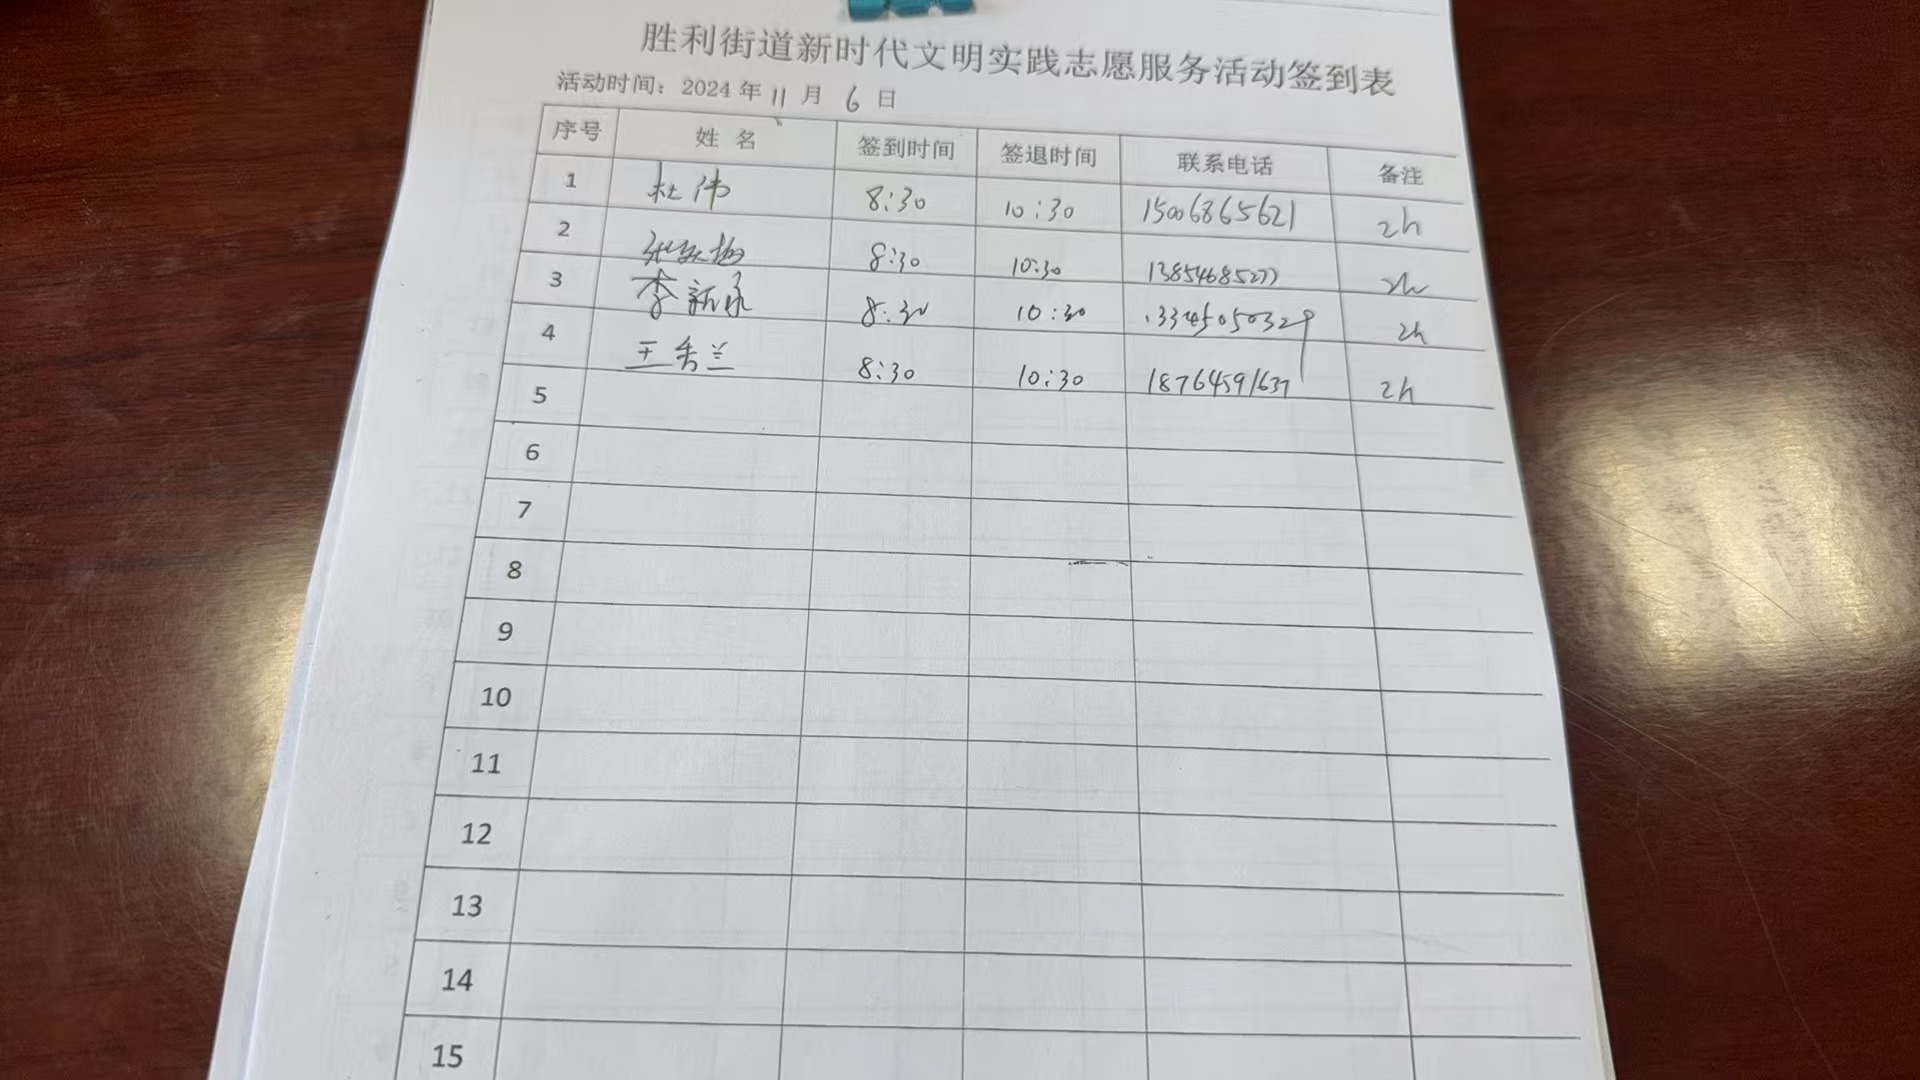 胜利街道新时代文明实践志愿服务活动签到表
活动时间：2024年11月6日
序号 姓名 签到时间 签退时间 联系电话 备注
1 杜伟 8:30 10:30 15006865621 2h
2 8:30 10:30 13854685277 2h
3 李新 8:30 10:30 13345050329 2h
4 王秀兰 8:30 10:30 18764591637 2h
5
6
7
8
9
10
11
12
13
14
15